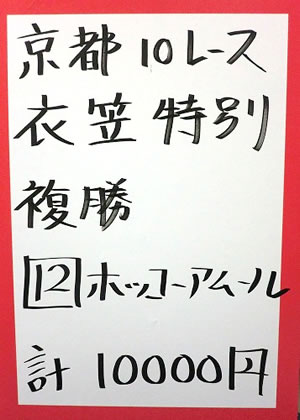 京都10レース
衣笠特別
複勝
12ホッコーアムール
計10000円